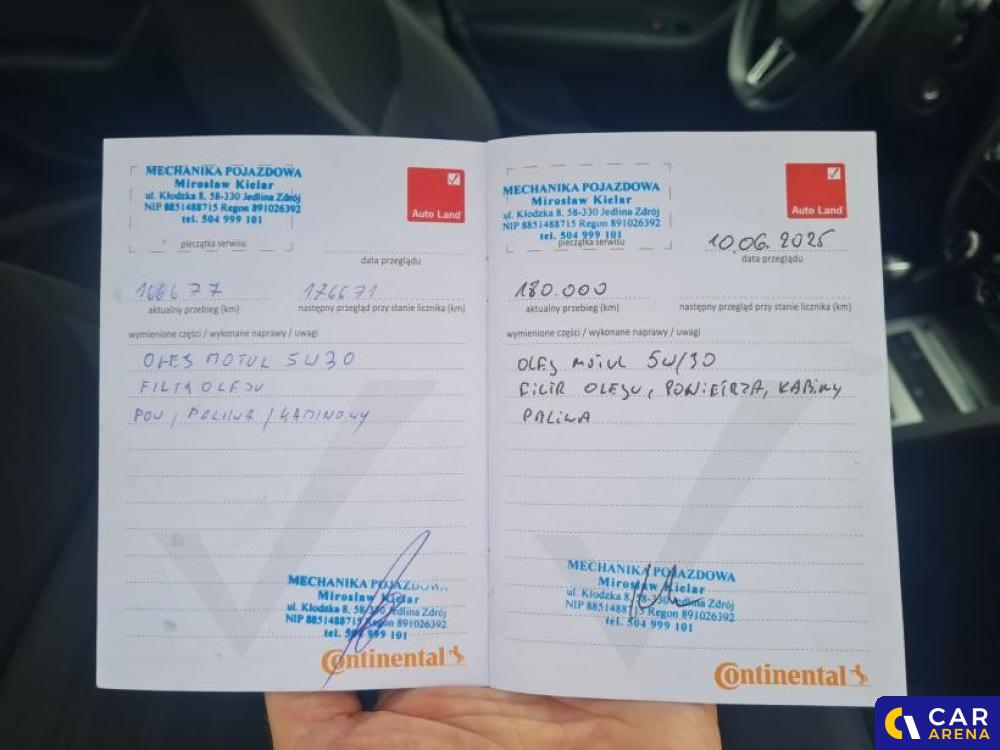 MECHANIKA POJAZDOWA
Mirosław Kielar
ul. Kłodzka 8, 58-330 Jedlina Zdrój
NIP 8851488715 Regon 891026392
tel. 504 999 101
pieczątka serwisu
Auto Land
data przeglądu
166677
176671
aktualny przebieg (km)
następny przegląd przy stanie licznika (km)
wymienione części / wykonane naprawy / uwagi
OLEJ MOTUL 5W30
FILTR OLEJU
POW, PALIWA / KABINOWY
MECHANIKA POJAZDOWA
Mirosław Kielar
ul. Kłodzka 8, 58-330 Jedlina Zdrój
NIP 8851488715 Regon 891026392
tel. 504 999 101
Continental
MECHANIKA POJAZDOWA
Mirosław Kielar
ul. Kłodzka 8, 58-330 Jedlina Zdrój
NIP 8851488715 Regon 891026392
tel. 504 999 101
pieczątka serwisu
Auto Land
10.06.2025
data przeglądu
180.000
aktualny przebieg (km)
następny przegląd przy stanie licznika (km)
wymienione części / wykonane naprawy / uwagi
OLEJ MOTUL 5W/30
FILTR OLEJU, POWIETRZA, KABINY
PALIWA
MECHANIKA POJAZDOWA
Mirosław Kielar
ul. Kłodzka 8, 58-330 Jedlina Zdrój
NIP 8851488715 Regon 891026392
tel. 504 999 101
Continental
CAR
ARENA